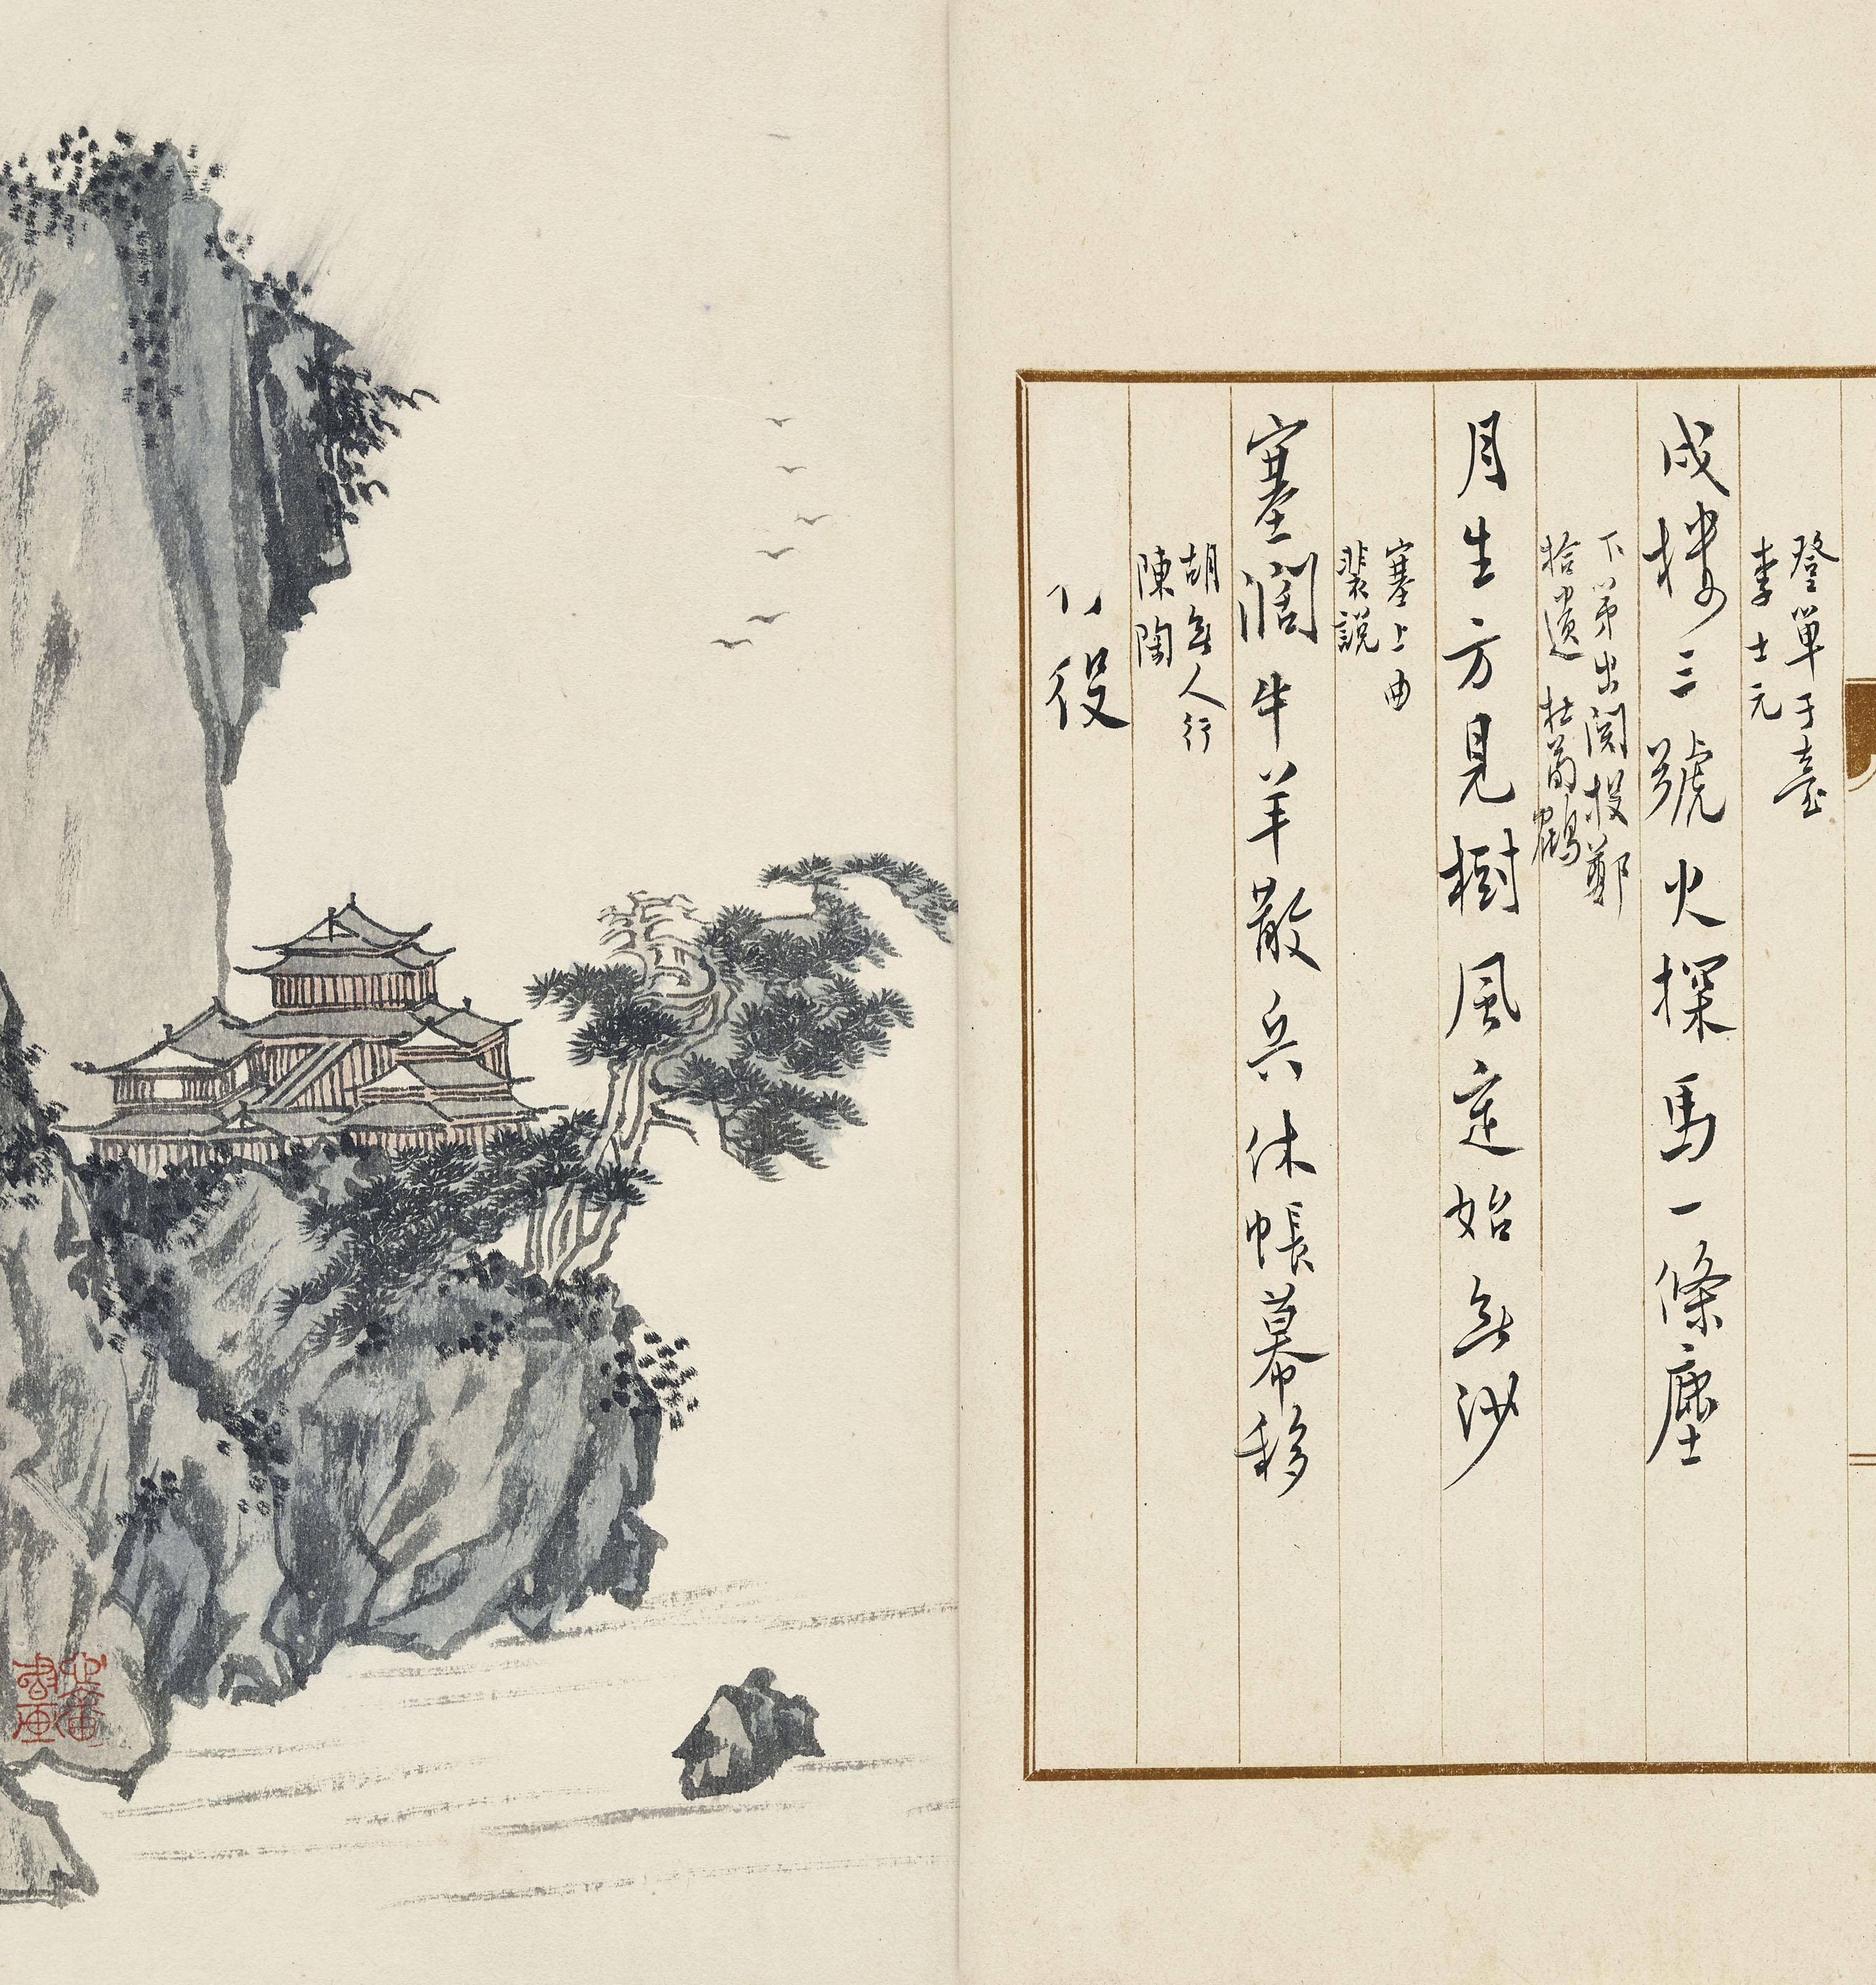 登單于臺
李士元
戍樓三號火探馬一條塵
下第出關投鄭
拾遺 杜荀鶴
月生方見樹風定始無沙
塞上曲
裴說
塞濶牛羊散兵休帳幕移
胡無人行
陳陶
行役